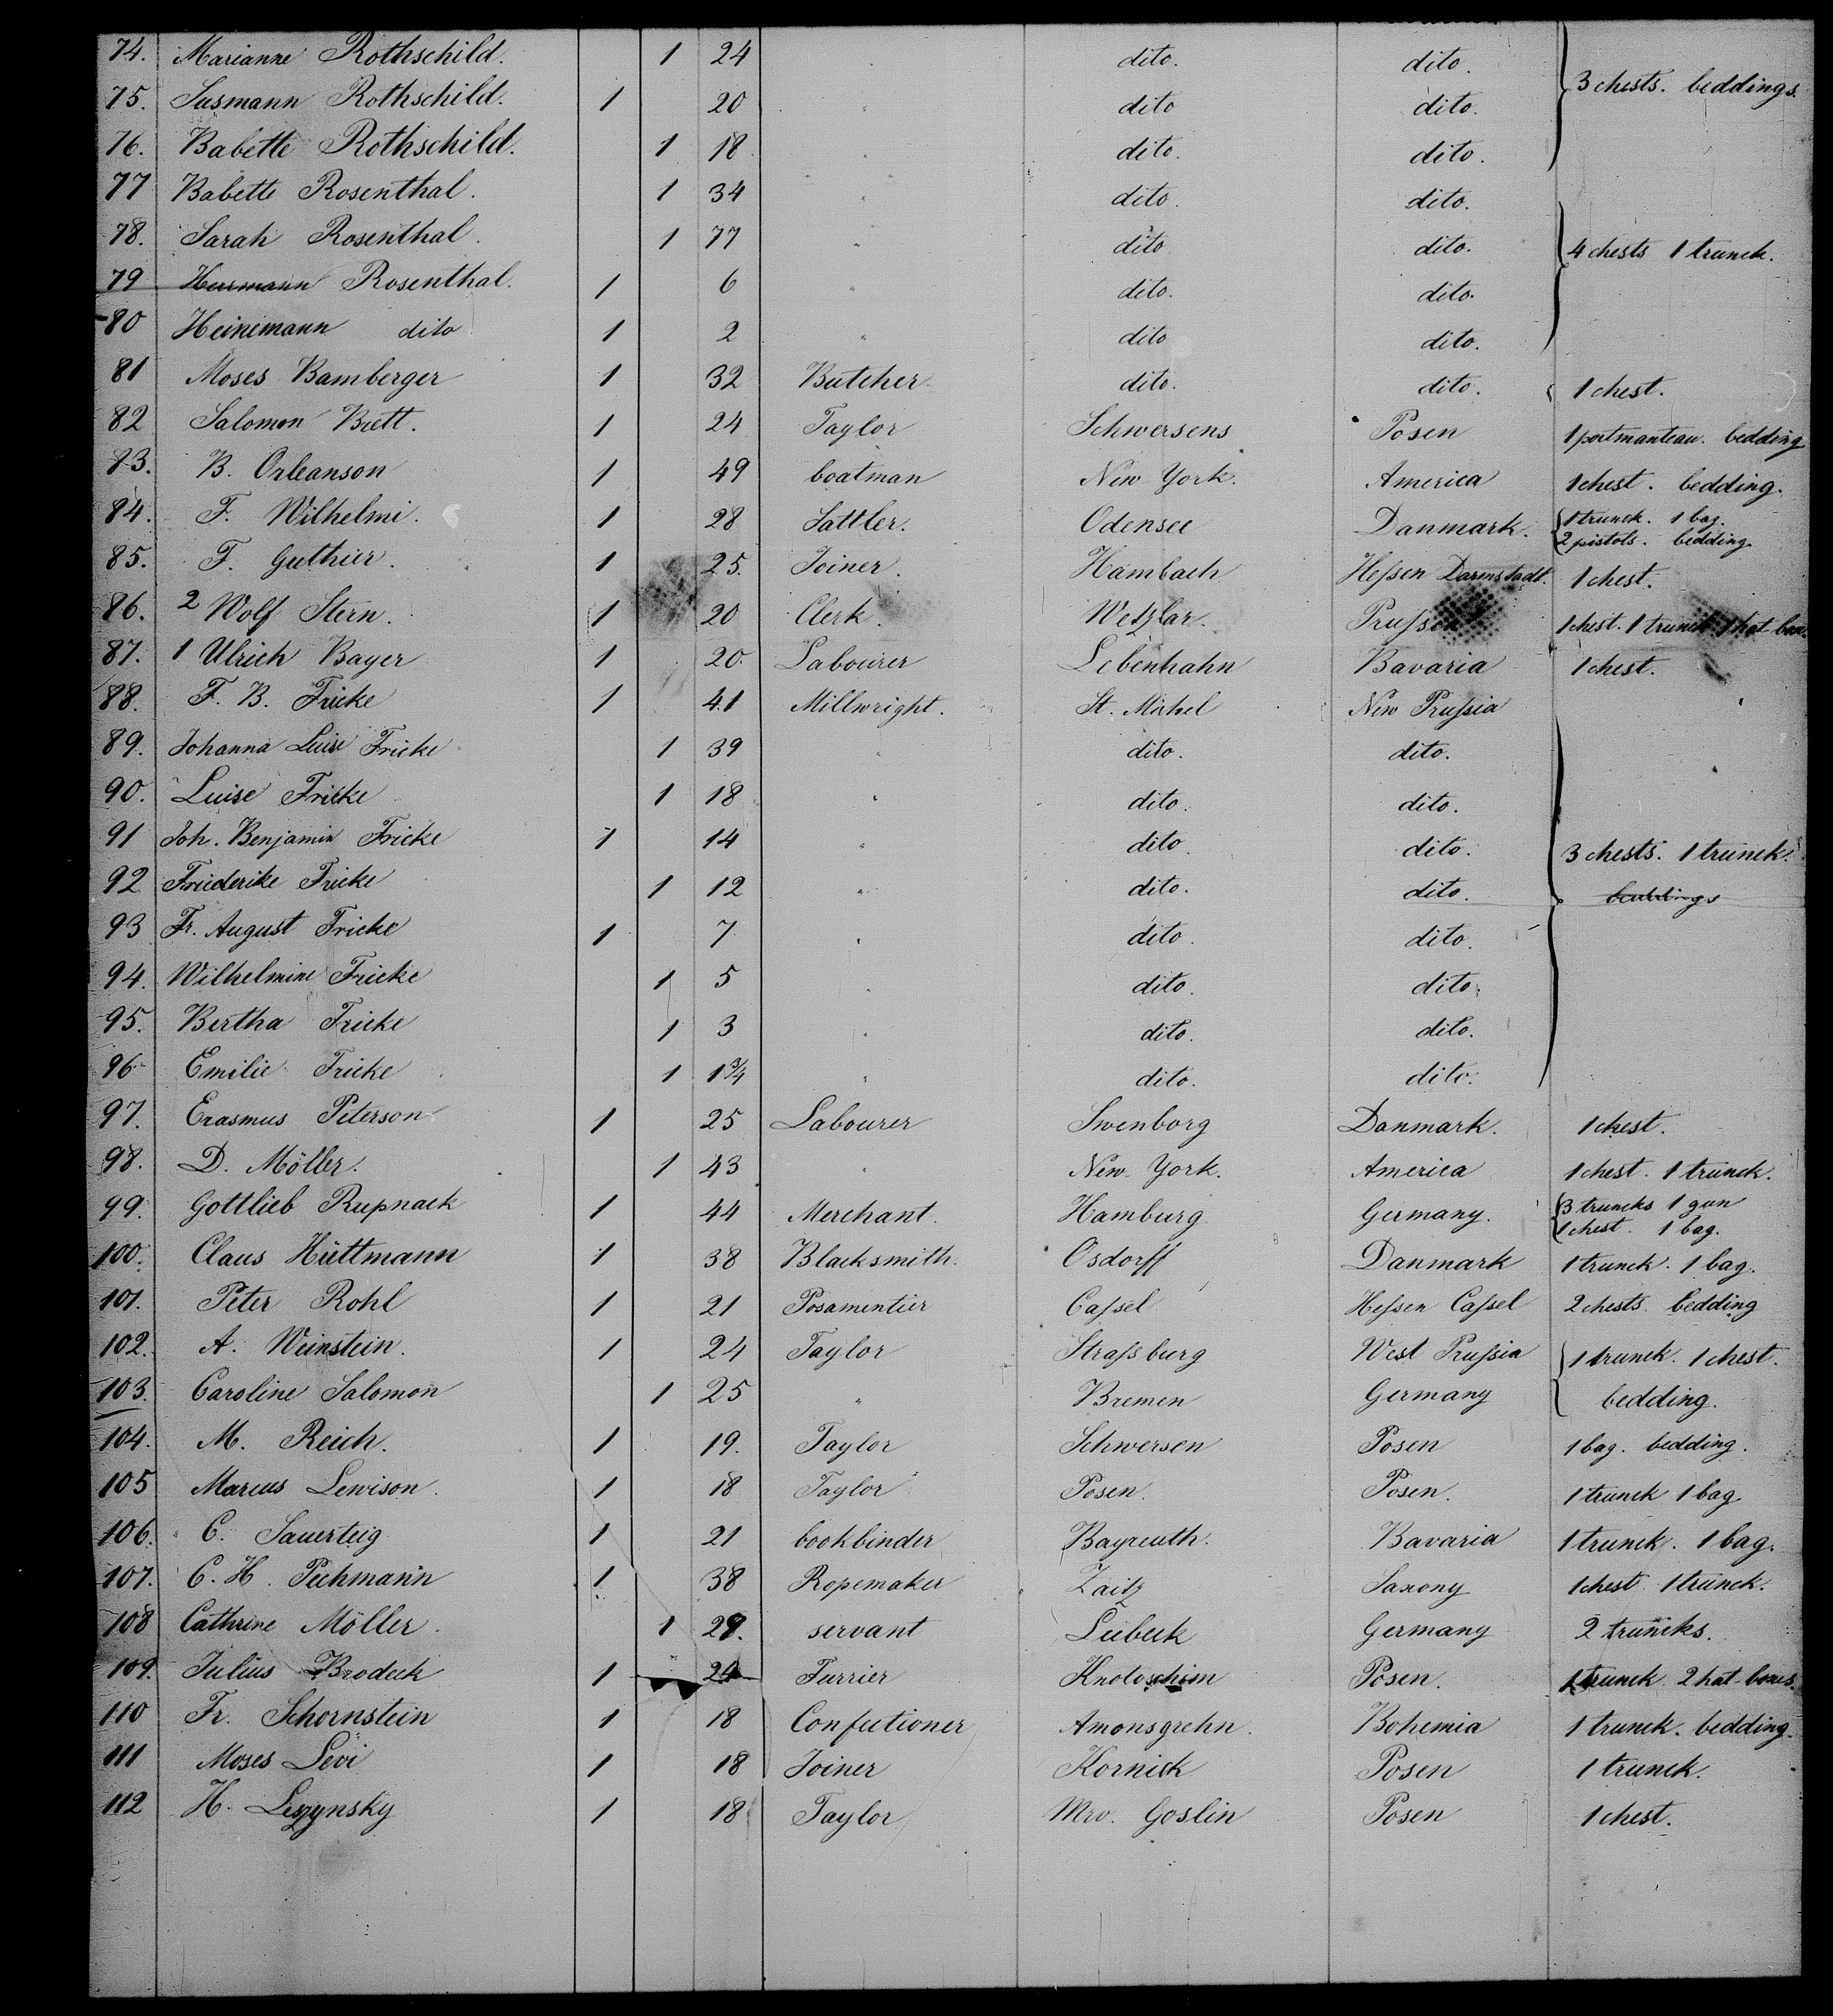 74. Marianne Rothschild. 1 24 " dito. dito.
75. Susmann Rothschild. 1 20 " dito dito. 3 chests. beddings.
76. Babette Rothschild. 1 18 " dito. dito.
77 Babette Rosenthal. 1 34 " dito. dito.
78. Sarah Rosenthal. 1 77 " dito dito. 4 chests 1 trunck.
79 Herrmann Rosenthal. 1 6 " dito. dito.
80 Heinemann dito 1 2 " dito dito.
81 Moses Bamberger 1 32 Butcher dito. dito. 1 chest.
82 Salomon Brett. 1 24 Taylor Schwersens Posen 1 portmanteau. bedding
83. B. Orleanson 1 49 boatman New York. America 1 chest. bedding.
84. F. Wilhelmi. 1 28 Sattler. Odensee Danmark. 1 trunck. 1 bag.
2 pistols. bedding.
85. F. Guthier. 1 25. Joiner. Hambach Hessen Darmstadt. 1 chest.
86. 2 Wolf Stern. 1 20 Clerk. Wetzlar. 1 chest. 1 trunck 1 hat-box.
87. 1 Ulrich Bayer 1 20. Labourer Lebenhahn Bavaria 1 chest.
88. F. B. Fricke 1 41 Millwright. St. Michel New Prussia
89. Johanna Luise Fricke 1 39 " dito. dito.
90. Luise Fricke 1 18 " dito. dito.
91 Joh. Benjamin Fricke 1 14 " dito dito. 3 chests. 1 trunck.
92 Friederike Fricke 1 12 " dito. dito. beddings
93 Fr. August Fricke 1 7 " dito. dito.
94. Wilhelmine Fricke 1 5 " dito. dito.
95. Bertha Fricke 1 3 " dito. dito.
96 Emilie Fricke 1 1 3/4 " dito. dito.
97. Erasmus Peterson 1 25 Labourer Swenborg Danmark. 1 chest.
98. D. Möller. 1 43 " New York. America 1 chest. 1 trunck.
99. Gottlieb Rupnack 1 44 Merchant. Hamburg Germany. 3 truncks 1 gun
1 chest. 1 bag.
100. Claus Hüttmann 1 38 Blacksmith. Osdorff Danmark 1 trunck. 1 bag.
101. Peter Rohl 1 21 Posamentier Cassel Hessen Cassel 2 chests. bedding
102. A. Weinstein. 1 24 Taylor Strassburg West Prussia 1 trunck. 1 chest.
103. Caroline Salomon 1 25 " Bremen Germany bedding.
104. M. Reich. 1 19. Taylor Schwersen Posen 1 bag. bedding.
105 Marcus Lewison. 1 18 Taylor Posen. Posen. 1 trunck 1 bag
106. C. Sauerteig 1 21 bookbinder Bayreuth. Bavaria 1 trunck. 1 bag.
107. C. H. Pechmann 1 38 Ropemaker Zaitz Saxony 1 chest 1 trunck.
108 Cathrine Möller. 1 29. servant Lübeck Germany 2 truncks.
109. Julius Brodeck 1 24 Furrier Knotoschim Posen. 1 trunck. 2 hat-boxes.
110 Fr. Schornstein 1 18 Confectioner Amonsgrehn. Bohemia 1 trunck. bedding.
111 Moses Levi 1 18 Joiner Kornick Posen 1 trunck.
112 H. Leszynsky 1 18 Taylor Mrv. Goslin Posen 1 chest.